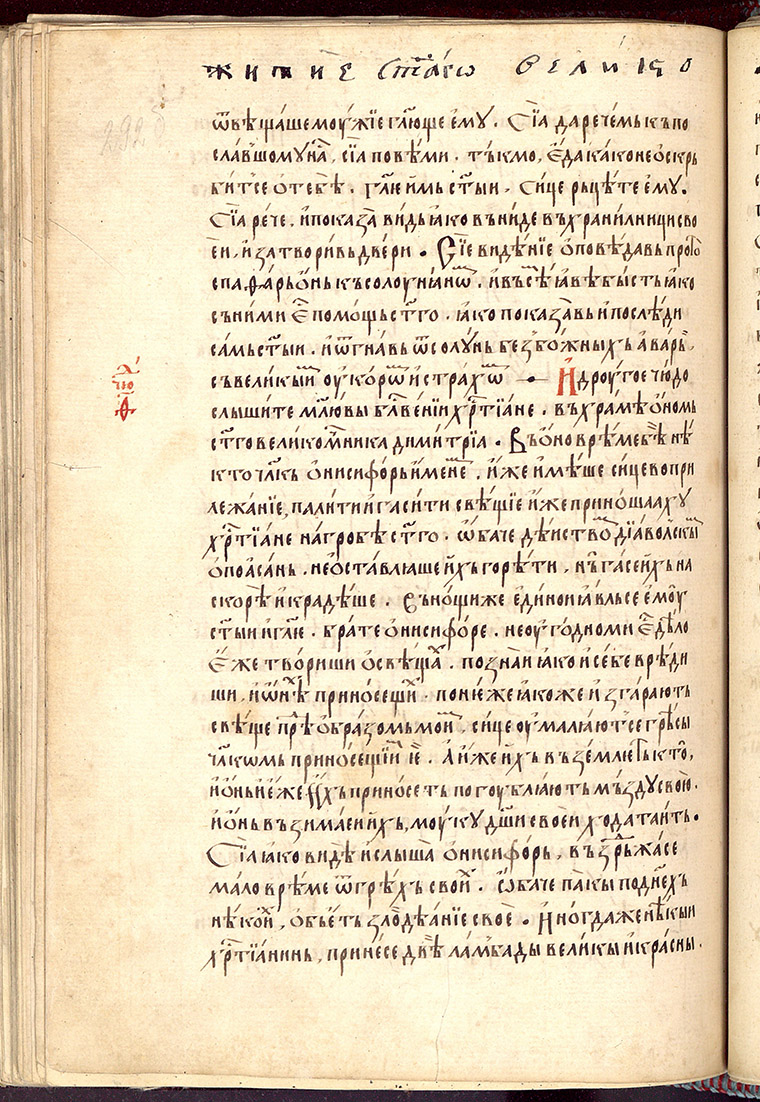 житїе ст҃аго велико
ѿвѣщаше моужїе гл҃юще ѐмꙋ. Сїа да речемь къ по
славшомꙋ на̑, сїа повѣми. тъкмо, еда како не оскрь
битсе ѻ тебѣ. гл҃е ймь ст҃ыи, сице рьцѣте ѐмꙋ.
Сїа рече. и показа видь ꙗко въниде въ хранилници сво
еи, и затвори вь двери. Сїе видѣнїе ѻповѣдавь прот
ѻспаѳарь ѻнь къ солоунꙗнѡⷨ. и въсѣ ꙗвѣ бысть ꙗко
съ ними е҆ⷭ помощь ст҃го. ꙗко показавь и послѣди
самь ст҃ыи. и ѿгнавь ѿ солꙋнь безбожныхь аварь,
съ великыиⷨ оукорѡⷨ и страхѡⷨ. И дроугое чюдо
чюⷣ
д҃
слышите мл҃ю вы бл҃гвенїи хрⷭтїане. въ храмѣ ѻномь
ст҃го великомⷱника димитрїа. Въ ѻно врѣме бѣ нѣ
кто чл҃кь ѻнисифѻрь именеⷨ. иже имѣше сицево при
лежанїе, палити и гасити свѣщїе йже приношаахꙋ
хрⷭтїане на гробѣ ст҃го. ѻбаче дѣиствоⷨ дїаволскыⷨ
ѻпоасань. не ѻставлꙗше йхь горѣти, нь гасе йхь на
скорѣ и крадѣше. Въ нощи же единои ꙗвльсе ѐмоу
ст҃ыи и гл҃ю. брате ѻнисифоре. не оугодно ми е҆ⷭ дѣло
еже твориши ѻ свѣщаⷯ. познаи ꙗко и себе врѣди
ши, и ѡнѣⷯ приносещиⷯ. понеже ꙗкоже изгарають
свѣще прⷣѣ ѻбразомь моиⷨ, сице оумалꙗютсе грѣсы
чл҃комь приносещїиⷨ іе. А иже йхь въземлѥть кто,
и ѻнь иже йхь приносеть погоублꙗють мьздꙋ свою.
и ѻнь възимаеи йхь, моукꙋ дш҃и своеи ходатаить.
Сїа ꙗко видѣ и слыша ѻнисифѻрь, въздрьжасе
мало врѣме ѿ грѣхь своиⷯ. ѻбаче пакы по днехь
нѣкоиⷯ, ѻбьеть злодѣанїе свое. Иногда же нѣкыи
хрⷭтїанинь, принесе двѣ ламбады великы и красны.